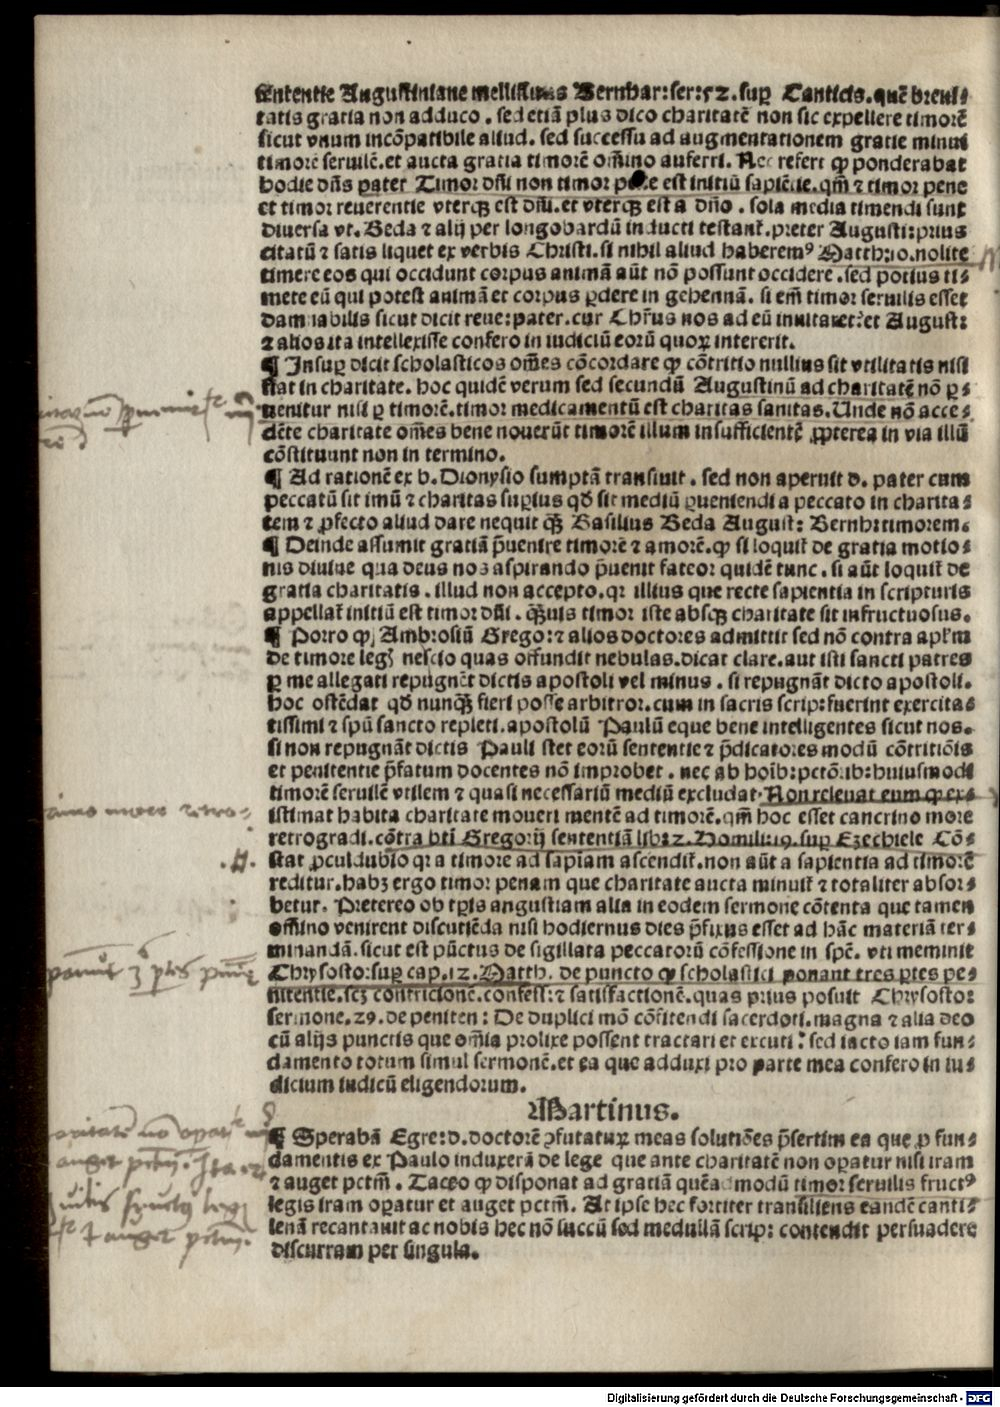 sententie Augustiniane mellifluus Bernhar: ser: 52. sup Canticis. quē breui⸗
tatis gratia non adduco. sed etiā plus dico charitatē non sic expellere timorē
sicut vnum incōpatibile aliud. sed successu ad augmentationem gratie minui
timorē seruilē. et aucta gratia timorē oīmno auferri. Nec refert ꝙ ponderabat
hodie dn̄s pater Timor dn̄i non timor pene est initiū sapiētie. qm̄ ⁊ timor pene
et timor reuerentie vterqꝫ est dn̄i. et vterqꝫ est a dn̄o. sola media timendi sunt
diuersa vt. Beda ⁊ alij per longobardū inducti testant᷑. preter Augusti: prius
citatū ⁊ satis liquet ex verbis Christi. si nihil aliud haberemꝰ Matth: 10. nolite
timere eos qui occidunt corpus animā aūt nō possunt occidere. sed potius ti⸗
mete eū qui potest animā et corpus ꝑdere in gehennā. si em̄ timor seruilis esset
damnabilis sicut dicit reue: pater. cur Chr̄us nos ad eū inuitaret: et August:
⁊ alios ita intellexisse confero in iudiciū eorū quoꝝ intererit.
¶ Insuꝑ dicit scholasticos om̄es cōcordare ꝙ cōtritio nullius sit vtilitatis nisi
fiat in charitate. hoc quidē verum sed secundū Augustinū ad charitatē nō ꝑ⸗
uenitur nisi ꝑ timorē. timor medicamentū est charitas sanitas. Unde nō acce⸗
dēte charitate om̄es bene nouerūt timorē illum insufficientē ꝓpterea in via illū
cōstituunt non in termino.
¶ Ad rationē ex b. Dionysio sumptā transiuit. sed non aperuit d. pater cum
peccatū sit imū ⁊ charitas supius qd̄ sit mediū ꝑueniendi a peccato in charita⸗
tem ⁊ ꝓfecto aliud dare nequit qꝫ Basilius Beda August: Bernh: timorem.
¶ Deinde assumit gratiā p̄uenire timorē ⁊ amorē. ꝙ si loquit᷑ de gratia motio⸗
nis diuine qua deus nos aspirando p̄uenit fateor quidē tunc. si aūt loquit᷑ de
gratia charitatis. illud non accepto. qr illius que recte sapientia in scripturis
appellat᷑ initiū est timor dn̄i. qꝫuis timor iste absqꝫ charitate sit infructuosus.
¶ Porro ꝙ Ambrosiū Grego: ⁊ alios doctores admittit sed nō contra apl'm
de timore legꝭ nescio quas offundit nebulas. dicat clare. aut isti sancti patres
ꝑ me allegati repugnēt dictis apostoli vel minus. si repugnāt dicto apostoli.
hoc ostēdat qd̄ nunqꝫ fieri posse arbitror. cum in sacris scrip: fuerint exercita⸗
tissimi ⁊ spū sancto repleti. apostolū Paulū eque bene intelligentes sicut nos.
si non repugnāt dictis Pauli stet eorū sententie ⁊ p̄dicatores modū cōtritiōis
et penitentie p̄fatum docentes nō improbet. nec ab hoīb: pctōrib: huiusmodi
timorē seruilē vtilem ⁊ quasi necessariū mediū excludat. Non releuat eum ꝙ ex⸗
istimat habita charitate moueri mentē ad timorē. qm̄ hoc esset cancrino more
retrogradi. cōtra bt̄i Gregorij sententiā lib: 2. Homili: 19. sup Ezechiele Cō⸗
stat ꝓculdubio qr a timore ad sapīam ascendit᷑. non aūt a sapientia ad timorē
reditur. habꝫ ergo timor penam que charitate aucta minuit᷑ ⁊ totaliter absor⸗
betur. Pretereo ob tp̄is angustiam alia in eodem sermone cōtenta que tamen
om̄ino venirent discutiēda nisi hodiernus dies p̄fixus esset ad hāc materiā ter⸗
minandā. sicut est pūctus de sigillata peccatorū cōfessione in spē. vti meminit
Chrysosto: sup cap. 12. Matth. de puncto ꝙ scholastici ponant tres ꝑtes pe⸗
nitentie. scꝫ contricionē. confess: ⁊ satisfactionē. quas prius posuit Chrysosto:
sermone. 29. de peniten: De duplici mō cōfitendi sacerdoti. magna ⁊ alia deo
cū alijs punctis que om̄ia prolixe possent tractari et excuti: sed iacto iam fun⸗
damento totum simul sermonē. et ea que adduxi pro parte mea confero in iu⸗
dicium iudicū eligendorum.
Martinus.
¶ Sperabā Egre: d. doctorē ꝯfutaturꝫ meas solutiōes p̄sertim ea que ꝓ fun⸗
damentis ex Paulo induxerā de lege que ante charitatē non oꝑatur nisi iram
⁊ auget pctm̄. Taceo ꝙ disponat ad gratiā quēadmodū timor seruilis fructꝰ
legis iram oꝑatur et auget pctm̄. At ipse hec fortiter transiliens eandē canti⸗
lenā recantauit ac nobis hec nō succū sed medullā scrip: contendit persuadere
discurram per singula.
Digitalisierung gefördert durch die Deutsche Forschungsgemeinschaft - DFG